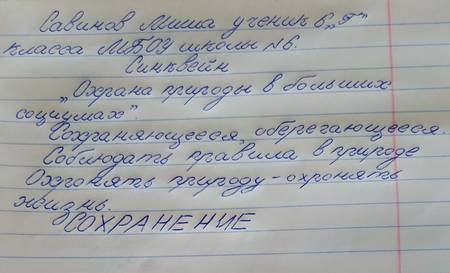 Савинов Миша ученик 6 „Г"
класса МБОУ школы №6.
Синквейн
„Охрана природы в больших
социумах".
Сохраняющееся, оберегающееся.
Соблюдать правила в природе
Охронять природу - охронять
жизнь.
СОХРАНЕНИЕ